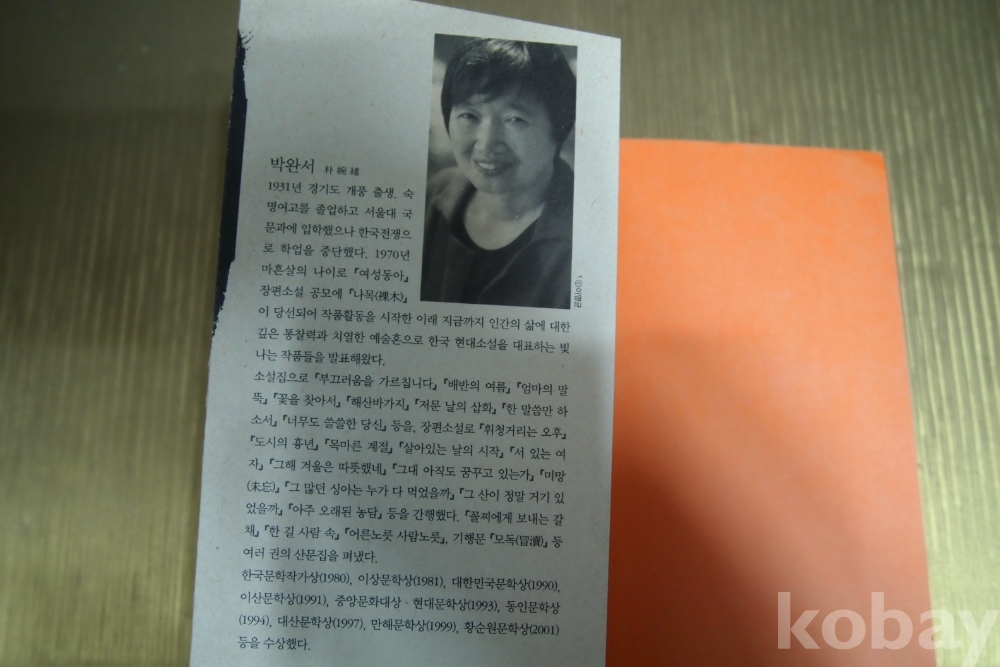 박완서 朴婉緖
1931년 경기도 개풍 출생. 숙
명여고를 졸업하고 서울대 국
문과에 입학했으나 한국전쟁으
로 학업을 중단했다. 1970년
마흔살의 나이로 『여성동아』
장편소설 공모에 『나목(裸木)』
이 당선되어 작품활동을 시작한 이래 지금까지 인간의 삶에 대한
깊은 통찰력과 치열한 예술혼으로 한국 현대소설을 대표하는 빛
나는 작품들을 발표해왔다.
소설집으로 『부끄러움을 가르칩니다』 『배반의 여름』 『엄마의 말
뚝』 『꽃을 찾아서』 『해산바가지』 『저문 날의 삽화』 『한 말씀만 하
소서』 『너무도 쓸쓸한 당신』 등을, 장편소설로 『휘청거리는 오후』
『도시의 흉년』 『목마른 계절』 『살아있는 날의 시작』 『서 있는 여
자』 『그해 겨울은 따뜻했네』 『그대 아직도 꿈꾸고 있는가』 『미망
(未忘)』 『그 많던 싱아는 누가 다 먹었을까』 『그 산이 정말 거기 있
었을까』 『아주 오래된 농담』 등을 간행했다. 『꼴찌에게 보내는 갈
채』 『한 길 사람 속』 『어른노릇 사람노릇』, 기행문 『모독(冒瀆)』 등
여러 권의 산문집을 펴냈다.
한국문학작가상(1980), 이상문학상(1981), 대한민국문학상(1990),
이산문학상(1991), 중앙문화대상·현대문학상(1993), 동인문학상
(1994), 대산문학상(1997), 만해문학상(1999), 황순원문학상(2001)
등을 수상했다.
kobay